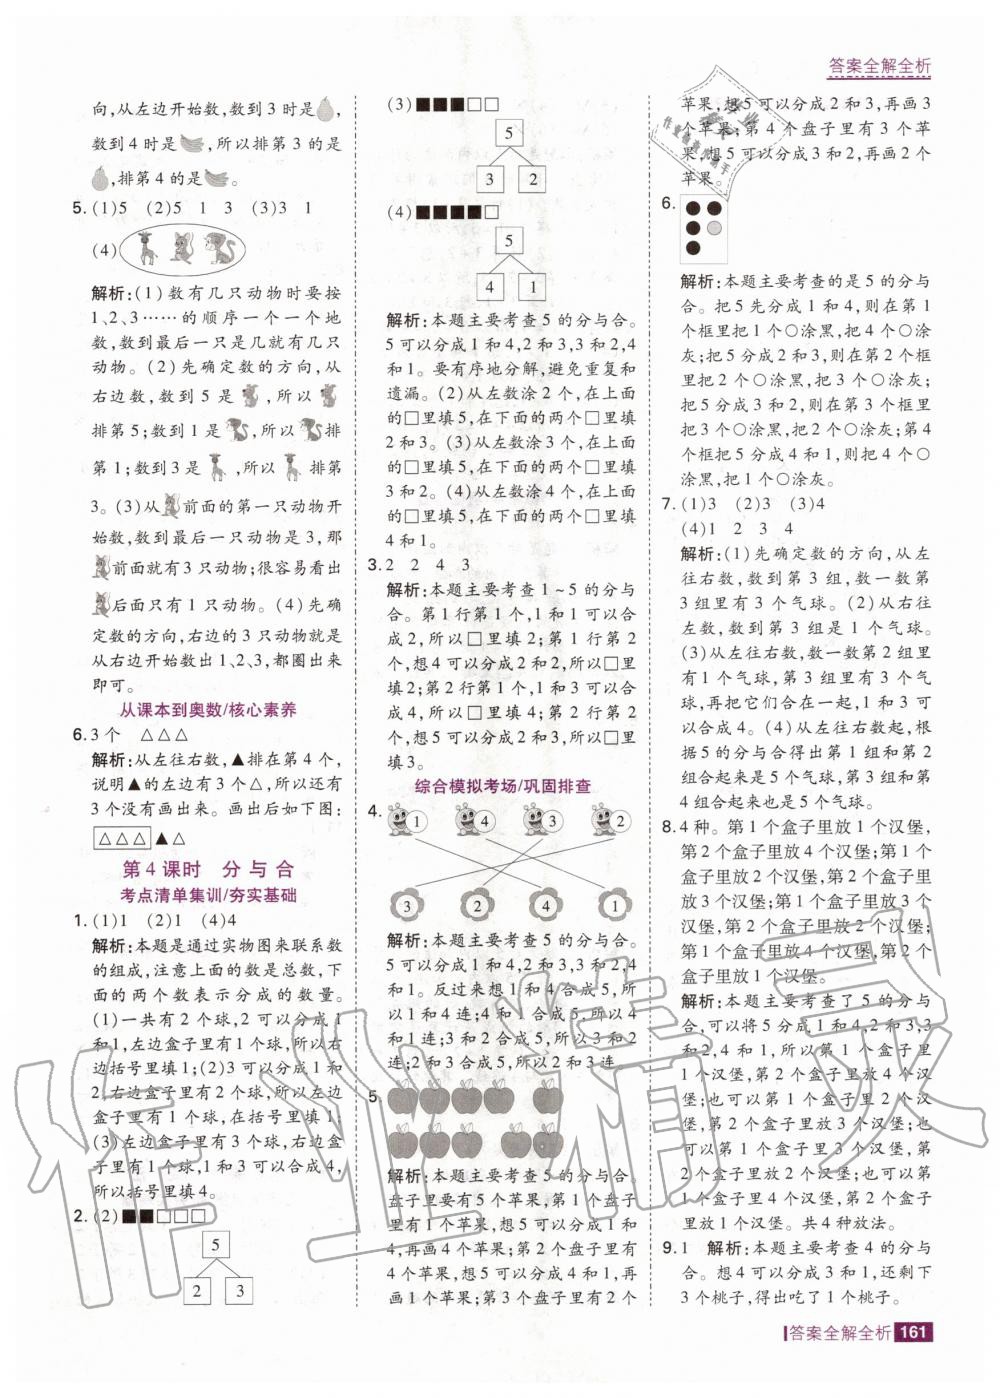 答案全解全析
向,从左边开始数,数到3时是
数到4时是,所以排第3的是
,排第4的是。
5. (1)5 (2)5 1 3 (3)3 1
(4)
解析:(1)数有几只动物时要按
1、2、3……的顺序一个一个地
数,数到最后一只是几就有几只
动物。(2)先确定数的方向,从
右边数,数到5是,所以
排第5;数到1是,所以排
第1;数到3是,所以排第
3。(3)从前面的第一只动物开
始数,数到最后一只动物是3,那
前面就有3只动物;很容易看出
后面只有1只动物。(4)先确
定数的方向,右边的3只动物就是
从右边开始数出1、2、3,都圈出来
即可。
从课本到奥数/核心素养
6. 3个 △△△
解析:从左往右数,▲排在第4个,
说明▲的左边有3个△,所以还有
3个没有画出来。画出后如下图:
△△△▲△
第4课时 分与合
考点清单集训/夯实基础
1. (1)1 (2)1 (4)4
解析:本题是通过实物图来联系数
的组成,注意上面的数是总数,下
面的两个数表示分成的数量。
(1)一共有2个球,2可以分成1
和1,左边盒子里有1个球,所以右
边括号里填1;(2)3可以分成1和
2,右边盒子里有2个球,左边
盒子里有1个球,在括号里填1;
(3)左边盒子里有3个球,右边盒
子里有1个球,1和3可以合成4,
所以括号里填4。
2. (2)■■□□□
5
2 3
(3)■■■□□
5
3 2
(4)■■■■□
5
4 1
解析:本题主要考查5的分与合。
5可以分成1和4,2和3,3和2,4
和1。要有序地分解,避免重复和
遗漏。(2)从左数涂2个,在上面
的□里填5,在下面的两个□里填
2和3。(3)从左数涂3个,在上面
的□里填5,在下面的两个□里填
3和2。(4)从左数涂4个,在上面
的□里填5,在下面的两个□里填
4和1。
3. 2 2 4 3
解析:本题主要考查1~5的分与
合。第1行第1个,1和1可以合
成2,所以□里填2;第1行第2
个,想4可以分成2和2,所以□里
填2;第2行第1个,1和3可以合
成4,所以□里填4;第2行第2
个,想5可以分成3和2,所以□里
填3。
综合模拟考场/巩固排查
4. 1 4 3 2
3 2 4 1
解析:本题主要考查5的分与合。
5可以分成1和4,2和3,3和2,4
和1。反过来想1和4合成5,所
以1和4连;4和1合成5,所以4
和1连;3和2合成5,所以3和2
连;2和3合成5,所以2和3连。
5.
解析:本题主要考查5的分与合。
盘子里要有5个苹果,第1个盘子
里有1个苹果,想5可以分成1和
4,再画4个苹果;第2个盘子里有
4个苹果,想5可以分成4和1,再
画1个苹果;第3个盘子里有2个
苹果,想5可以分成2和3,再画3
个苹果;第4个盘子里有3个苹
果,想5可以分成3和2,再画2个
苹果。
6.
解析:本题主要考查的是5的分与
合。把5先分成1和4,则在第1
个框里把1个○涂黑,把1个○涂
灰;把5分成2和3,则在第2个框
里把2个○涂黑,把1个○涂灰;
把5分成3和2,则在第3个框里
把3个○涂黑,把1个○涂灰;第4
个框把5分成4和1,则把4个○
涂黑,把1个○涂灰。
7. (1)3 (2)3 (3)4
(4)1 2 3 4
解析:(1)先确定数的方向,从左
往右数,数到第3组,数一数第
3组里有3个气球。(2)从右往
左数,数到第3组是1个气球。
(3)从左往右数,数一数第2组里
有1个气球,第3组里有3个气
球,再把它们合在一起,1和3可
以合成4。(4)从左往右数起,根
据5的分与合得出第1组和第2
组合起来是5个气球,第3组和第4
组合起来也是5个气球。
8. 4种。第1个盒子里放1个汉堡,
第2个盒子里放4个汉堡;第1个
盒子里放2个汉堡,第2个盒子里
放3个汉堡;第1个盒子里放3个
汉堡,第2个盒子里放2个汉堡;
第1个盒子里放4个汉堡,第2个
盒子里放1个汉堡。
解析:本题主要考查了5的分与
合,可以将5分成1和4,2和3,3
和2,4和1,所以第1个盒子里放
1个汉堡,第2个盒子里放4个汉
堡;也可以第1个盒子里放2个汉
堡,第2个盒子里放3个汉堡;也
可以第1个盒子里放3个汉堡,第
2个盒子里放2个汉堡;也可以第
1个盒子里放4个汉堡,第2个盒子
里放1个汉堡。共4种放法。
9. 1 解析:本题主要考查4的分与
合。想4可以分成3和1,还剩下
3个桃子,得出吃了1个桃子。
答案全解全析 161
作业精灵